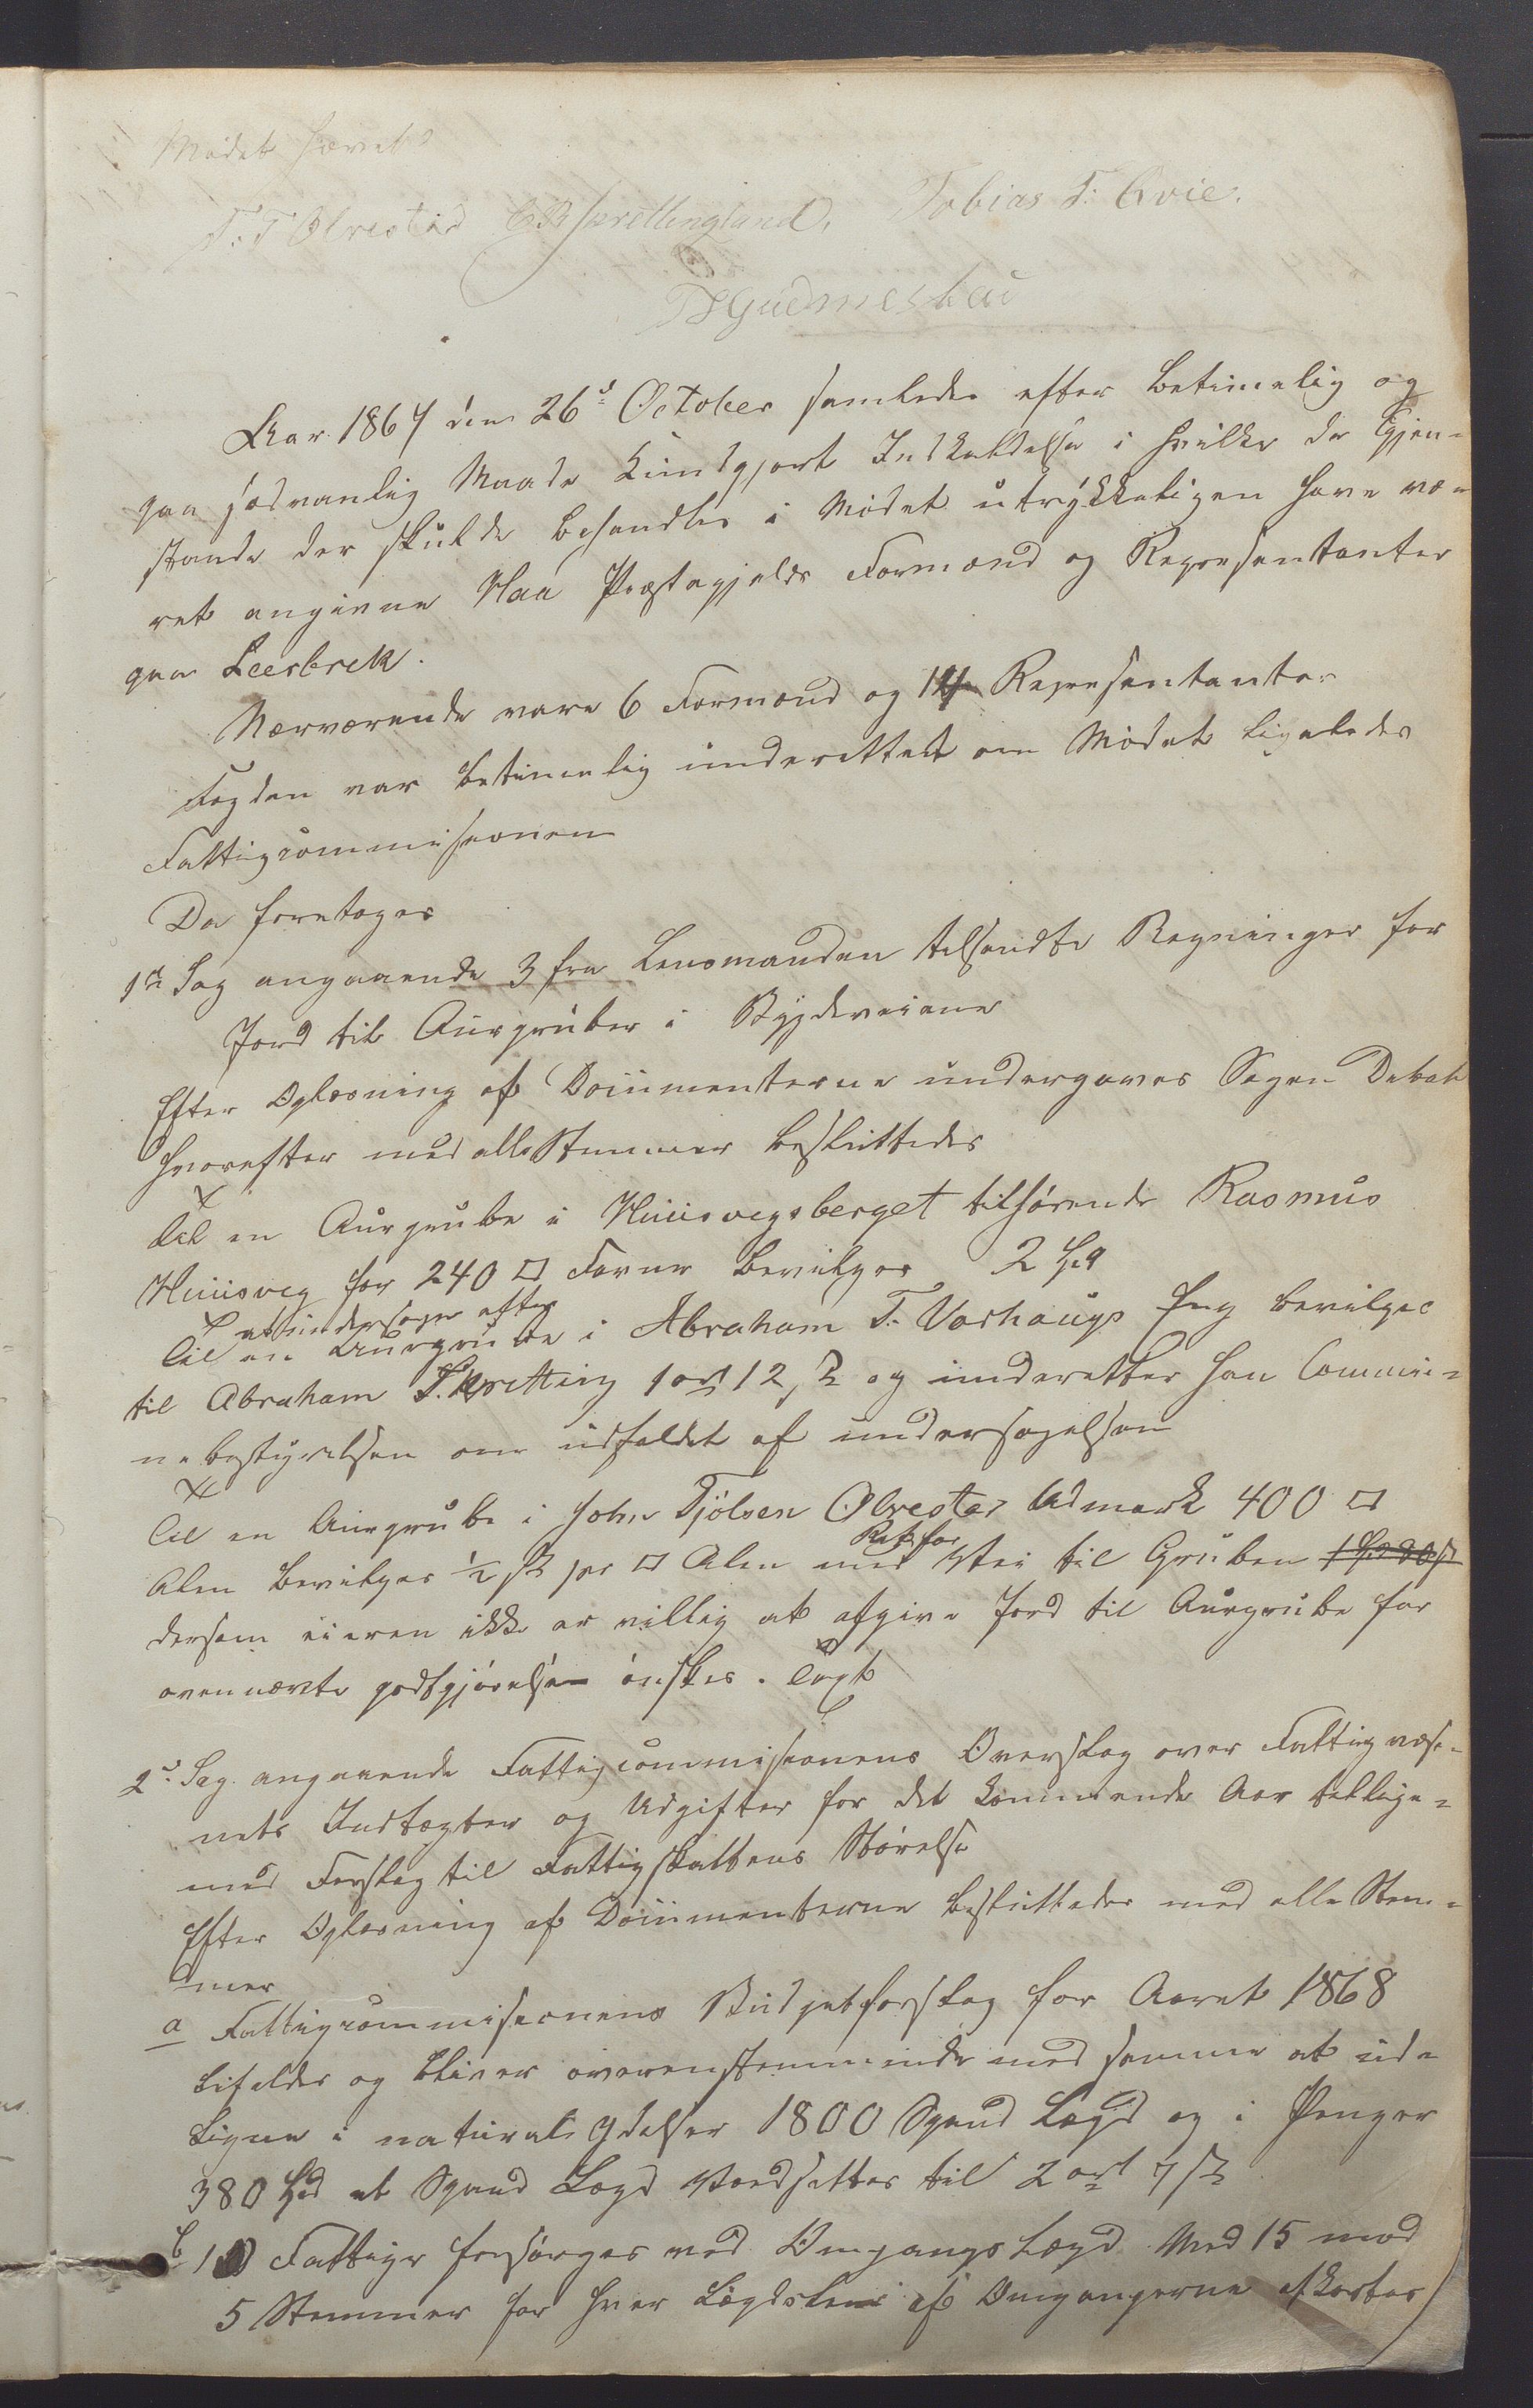 Mødet hævet
T. T Ølvestad O B Skretlingland, Tobias T: Qvie.
T S Gudmestad
Aar 1867 den 26d October samledes efter betimelig og
paa sædvanlig Maade Kundgjort Indkaldelse i hvilke de Gjen-
stande der skulde behandles i Mødet utrykkeligen have væ-
ret angivne Haa Præstegjelds Formænd og Repræsentanter
paa Leerbrek.
Nærværende vare 6 Formænd og 14 Repræsentanter
Fogden var betimelig underettet om Mødet ligeledes
Fattigcommisionen
Da foretoges
1st Sag angaaende 3 fra Lensmanden tilsendte Regninger for
Jord til Aurgruber i Bygdeveiene
Efter Oplæsning af Documenterne undergaves Sagen Debat
hvorefter med alle Stemmer besluttedes
til en Aurgrube i Huusvegsberget tilhørende Rasmus
Huusveg for 240 □ Favne bevilges 2 Spd
at undersøges efter
til en Aurgrube i Abraham T. Varhaugs Eng bevilges
til Abraham T. Skretting 1 ort 12 s og underetter han Commu-
nebestyrelsen om udfaldet af undersøgelsen
til en Aurgrube i John Tjølsen Ølvestad Udmark 400 □
Alen bevilges ½ s pr □ Alen med Ret for Vei til Gruben
dersom eieren ikke er villig at afgive Jord til Aurgrube for
ovennævte godtgjørelse ønskes. Taxt
2d Sag angaaende Fattigcommisionens Overslag over Fattigvæse-
nets Indtægter og Udgifter for det kommende Aar tillige-
med Forslag til Fattigskattens Størelse
Efter Oplæsning af Documenterne besluttedes med alle Stem-
mer
a Fattigcommisionens Budjetforslag for Aaret 1868
bifaldes og bliver overenstemmende med samme at ud-
ligne i natural Ydelser 1800 Spand Lægd og i Penger
380 Spd et Spand Lægd Værdsættes til 2 ort 7 s
b 10 Fattige forsørges ved Omgangs Lægd Med 15 mod
5 Stemmer for hver Lægdslem af Omgangerne afkortes